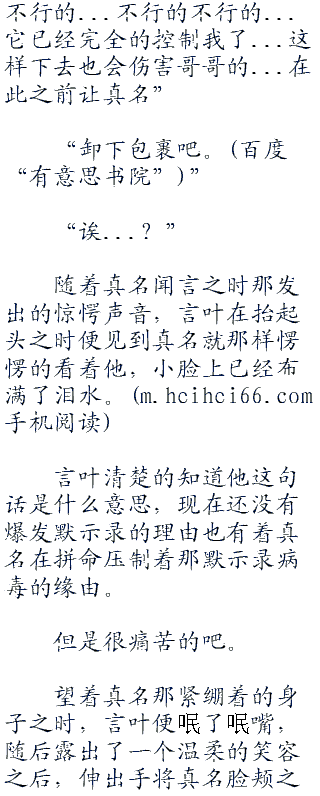 不行的...不行的不行的...
它已经完全的控制我了...这
样下去也会伤害哥哥的...在
此之前让真名”
“卸下包裹吧。(百度
“有意思书院”)”
“诶...？”
随着真名闻言之时那发
出的惊愕声音，言叶在抬起
头之时便见到真名就那样愣
愣的看着他，小脸上已经布
满了泪水。(m.hcihci66.com
手机阅读)
言叶清楚的知道他这句
话是什么意思，现在还没有
爆发默示录的理由也有着真
名在拼命压制着那默示录病
毒的缘由。
但是很痛苦的吧。
望着真名那紧绷着的身
子之时，言叶便呡了呡嘴，
随后露出了一个温柔的笑容
之后，伸出手将真名脸颊之